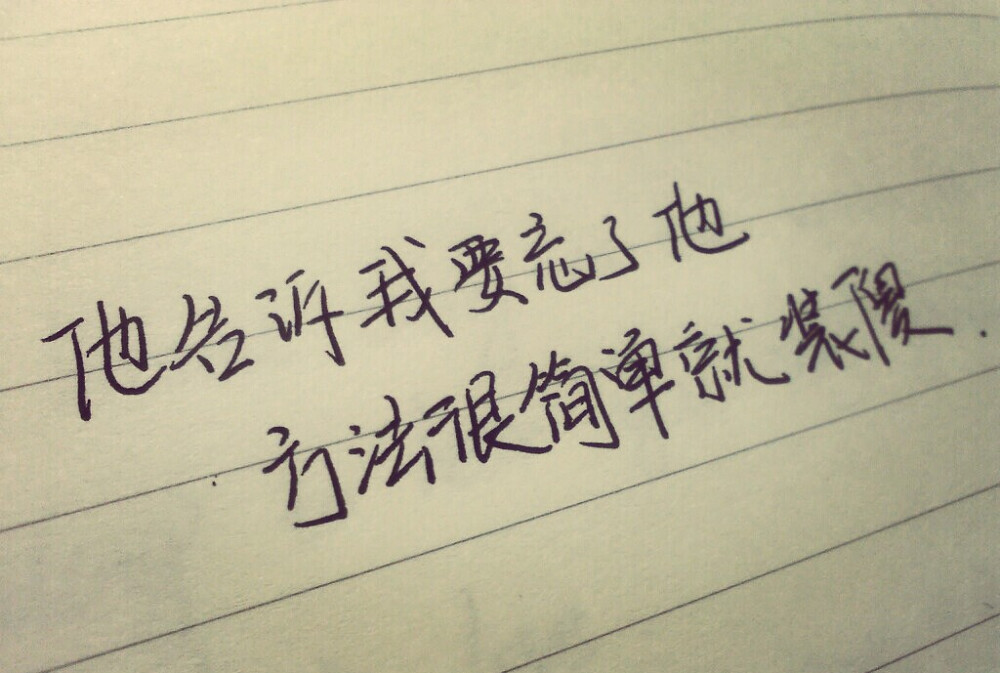 他告诉我要忘了他
方法很简单就装傻.